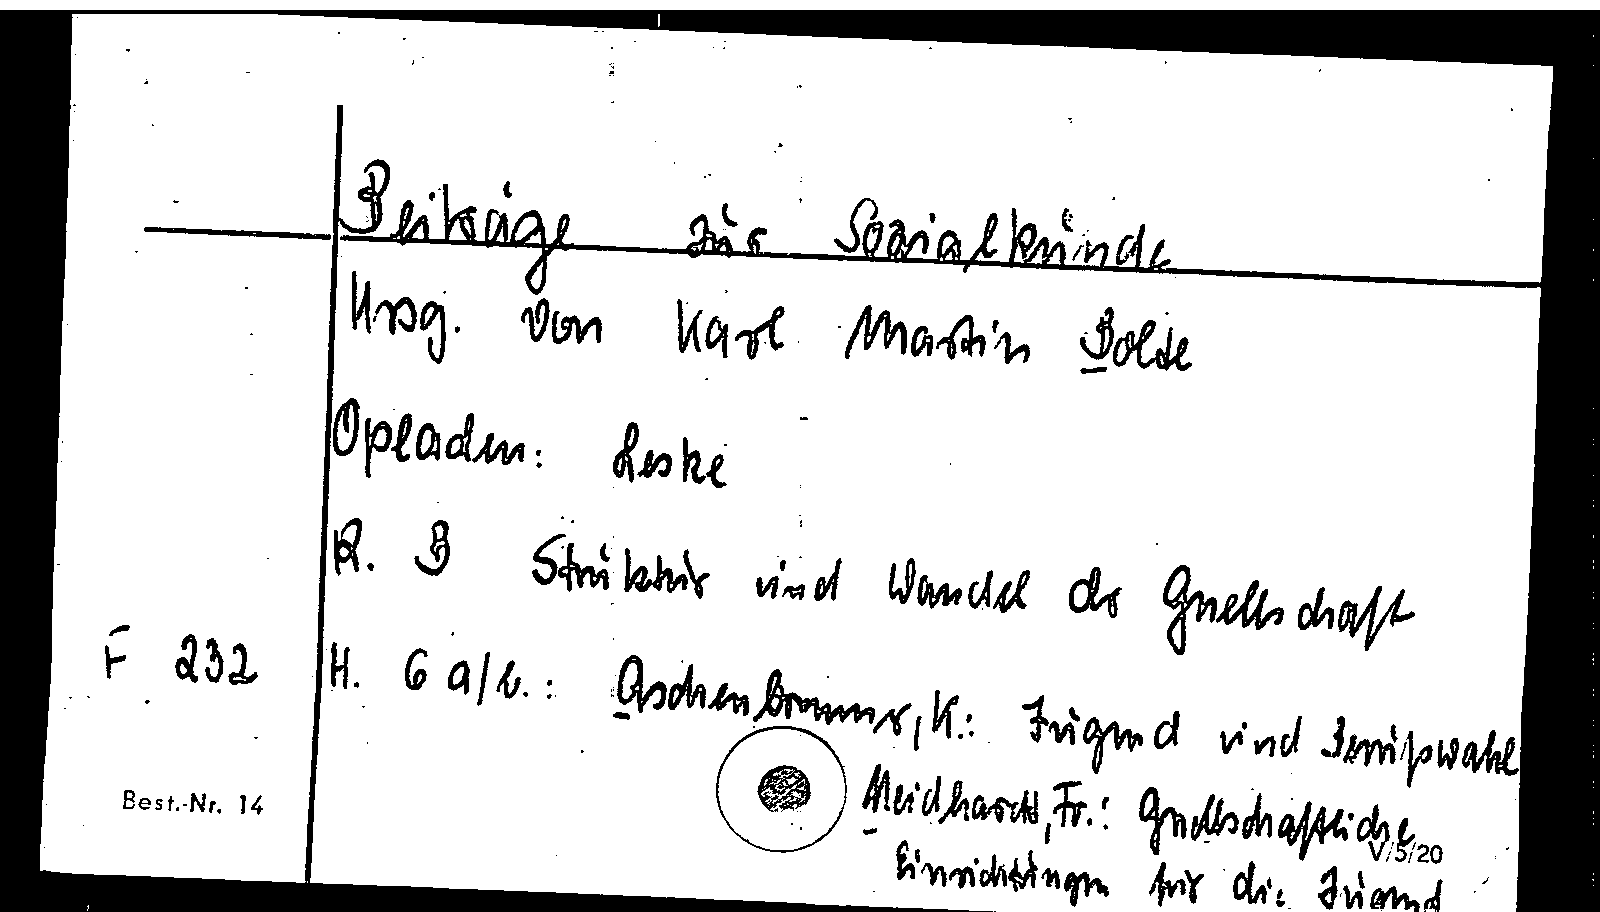 Beiträge zur Sozialkunde
Hrsg. von Karl Martin Bolte
Opladen: Leske
R. B Struktur und Wandel der Gesellschaft
F 232 H. 6 a/b.: Aschenbrenner, K.: Jugend und Berufswahl
Neidhardt, Fr.: Gesellschaftliche
Best.-Nr. 14
V/5/20
Einrichtungen für die Jugend